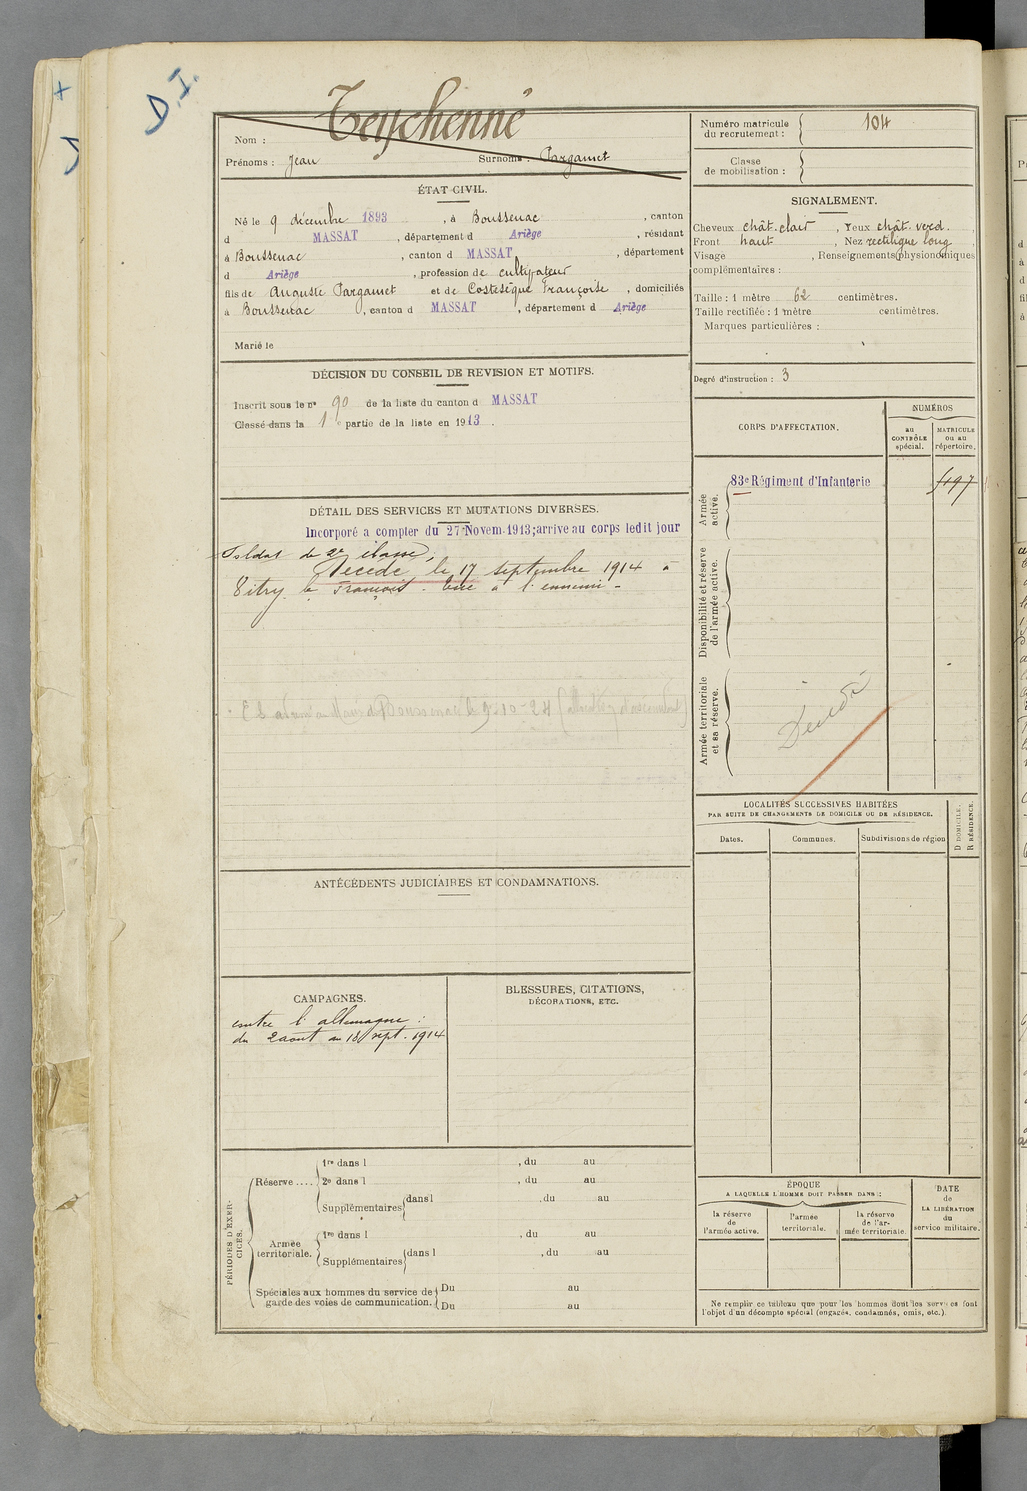 D.I.
Nom : Teychenné
Prénoms : Jean Surnoms : Pargamet
Numéro matricule du recrutement : 104
Classe de mobilisation :
ÉTAT CIVIL.
Né le 9 décembre 1893, à Boussenac, canton
d MASSAT, département d Ariège, résidant
à Boussenac, canton d MASSAT, département
d Ariège, profession de cultivateur
fils de Auguste Pargamet et de Costesèque Françoise, domiciliés
à Boussenac, canton d MASSAT, département d Ariège
Marié le
DÉCISION DU CONSEIL DE REVISION ET MOTIFS.
Inscrit sous le n° 90 de la liste du canton d MASSAT
Classé dans la 1e partie de la liste en 1913.
DÉTAIL DES SERVICES ET MUTATIONS DIVERSES.
Incorporé a compter du 27 Novem. 1913; arrive au corps ledit jour
Soldat de 2e classe,
Décédé le 17 septembre 1914 à
Vitry le François. Tué à l'ennemi -
ANTÉCÉDENTS JUDICIAIRES ET CONDAMNATIONS.
CAMPAGNES.
contre l'allemagne :
du 2 aout au 18 sept. 1914
BLESSURES, CITATIONS,
DÉCORATIONS, ETC.
PÉRIODES D'EXERCICES.
Réserve ....
1re dans l , du au
2e dans l , du au
Supplémentaires dans l , du au
Armée territoriale.
1re dans l , du au
Supplémentaires dans l , du au
Spéciales aux hommes du service de garde des voies de communication.
Du au
Du au
SIGNALEMENT.
Cheveux chât. clair, Yeux chât. verd.
Front haut, Nez rectiligne long,
Visage , Renseignements physionomiques
complémentaires :
Taille : 1 mètre 62 centimètres.
Taille rectifiée : 1 mètre centimètres.
Marques particulières :
Degré d'instruction : 3
CORPS D'AFFECTATION.
NUMÉROS
au CONTRÔLE spécial.
MATRICULE ou au répertoire.
Armée active.
83e Régiment d'Infanterie
Disponibilité et réserve de l'armée active.
Armée territoriale et sa réserve.
Décédé
LOCALITÉS SUCCESSIVES HABITÉES
PAR SUITE DE CHANGEMENTS DE DOMICILE OU DE RÉSIDENCE.
Dates.
Communes.
Subdivisions de région
D DOMICILE.
R RÉSIDENCE.
ÉPOQUE
A LAQUELLE L'HOMME DOIT PASSER DANS :
la réserve de l'armée active.
l'armée territoriale.
la réserve de l'armée territoriale.
DATE
de
LA LIBÉRATION
du
service militaire.
Ne remplir ce tableau que pour les hommes dont les services font
l'objet d'un décompte spécial (engagés, condamnés, omis, etc.).